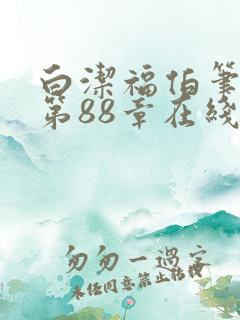 白潔福伯筆
第88章在綫
匆匆一過客
未经同意禁止转载